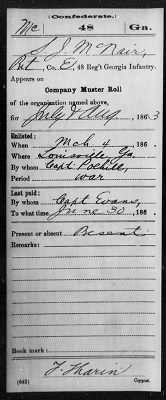 (Confederate.)
Mc 48 Ga.
S. J. McNair,
Pvt, Co. E, 48 Reg't Georgia Infantry.
Appears on
Company Muster Roll
of the organization named above,
for July & Aug, 1863
Enlisted:
When Mch 4, 186 .
Where Louisville, Ga.
By whom Capt. Polhill
Period war
Last paid:
By whom Capt Evans,
To what time June 30, 186 .
Present or absent
Remarks:
Book mark:
(642) Copyist.